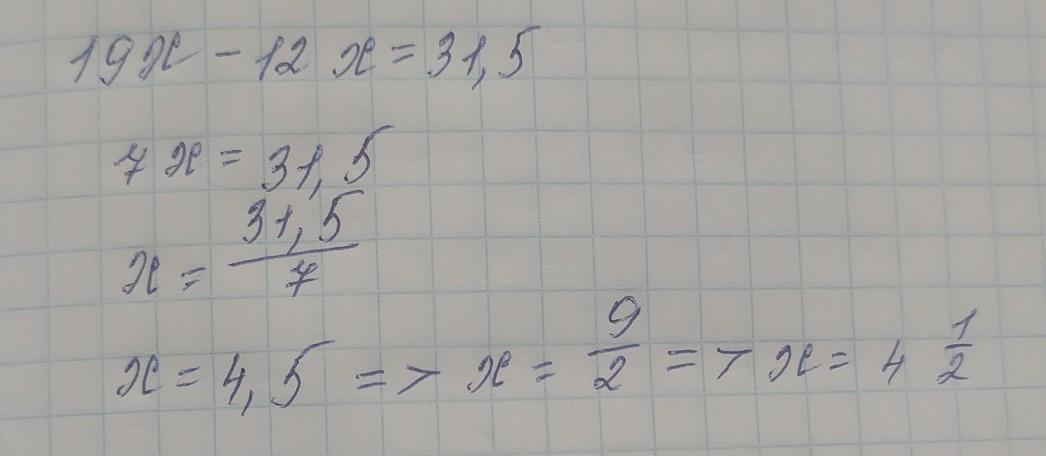 19x - 12x = 31,5
7x = 31,5
x = 31,5/7
x = 4,5 => x = 9/2 => x = 4 1/2